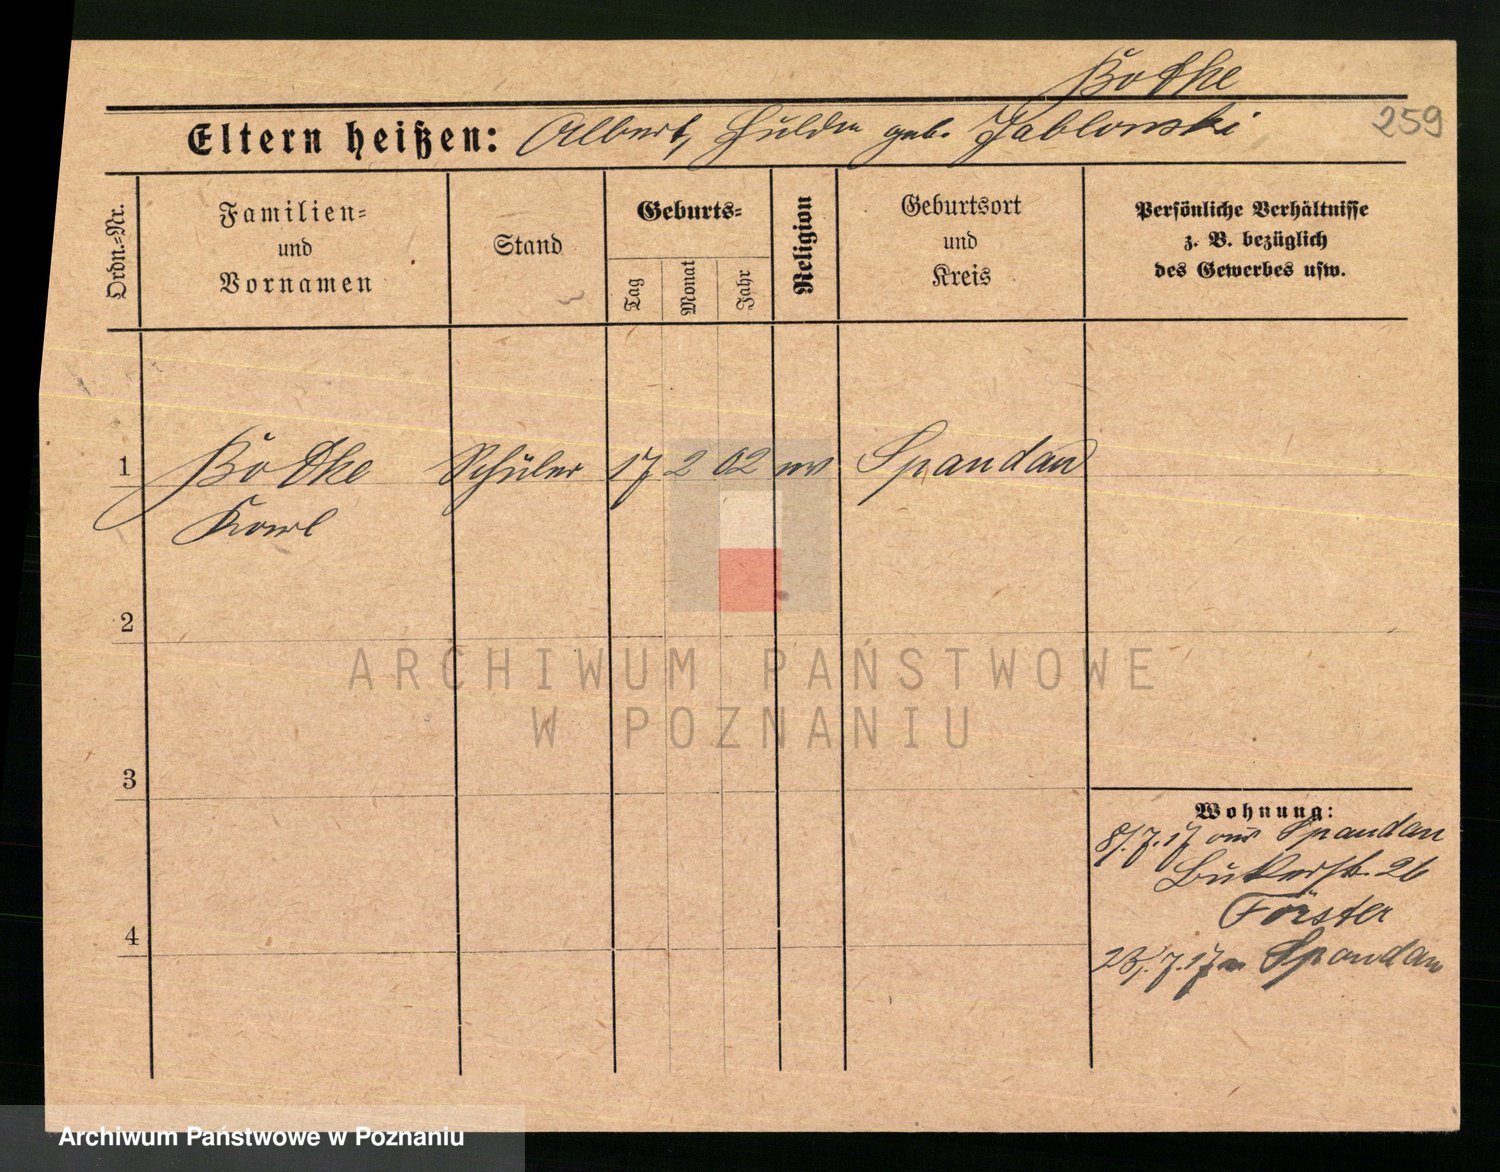 Bothe
Eltern heißen: Albert, Hulda geb. Jablonski
259
Ordn.=Nr.
Familien=
und
Vornamen
Stand
Geburts=
Tag
Monat
Jahr
Religion
Geburtsort
und
Kreis
Persönliche Verhältnisse
z. B. bezüglich
des Gewerbes usw.
1 Bothe Schüler 17 2 02 ev Spandau
Karl
2
ARCHIWUM PAŃSTWOWE
W POZNANIU
3
Wohnung:
8/.7.17 aus Spandau
Bukerstr. 26
Förster
4
23/.7.17 n Spandau
Archiwum Państwowe w Poznaniu